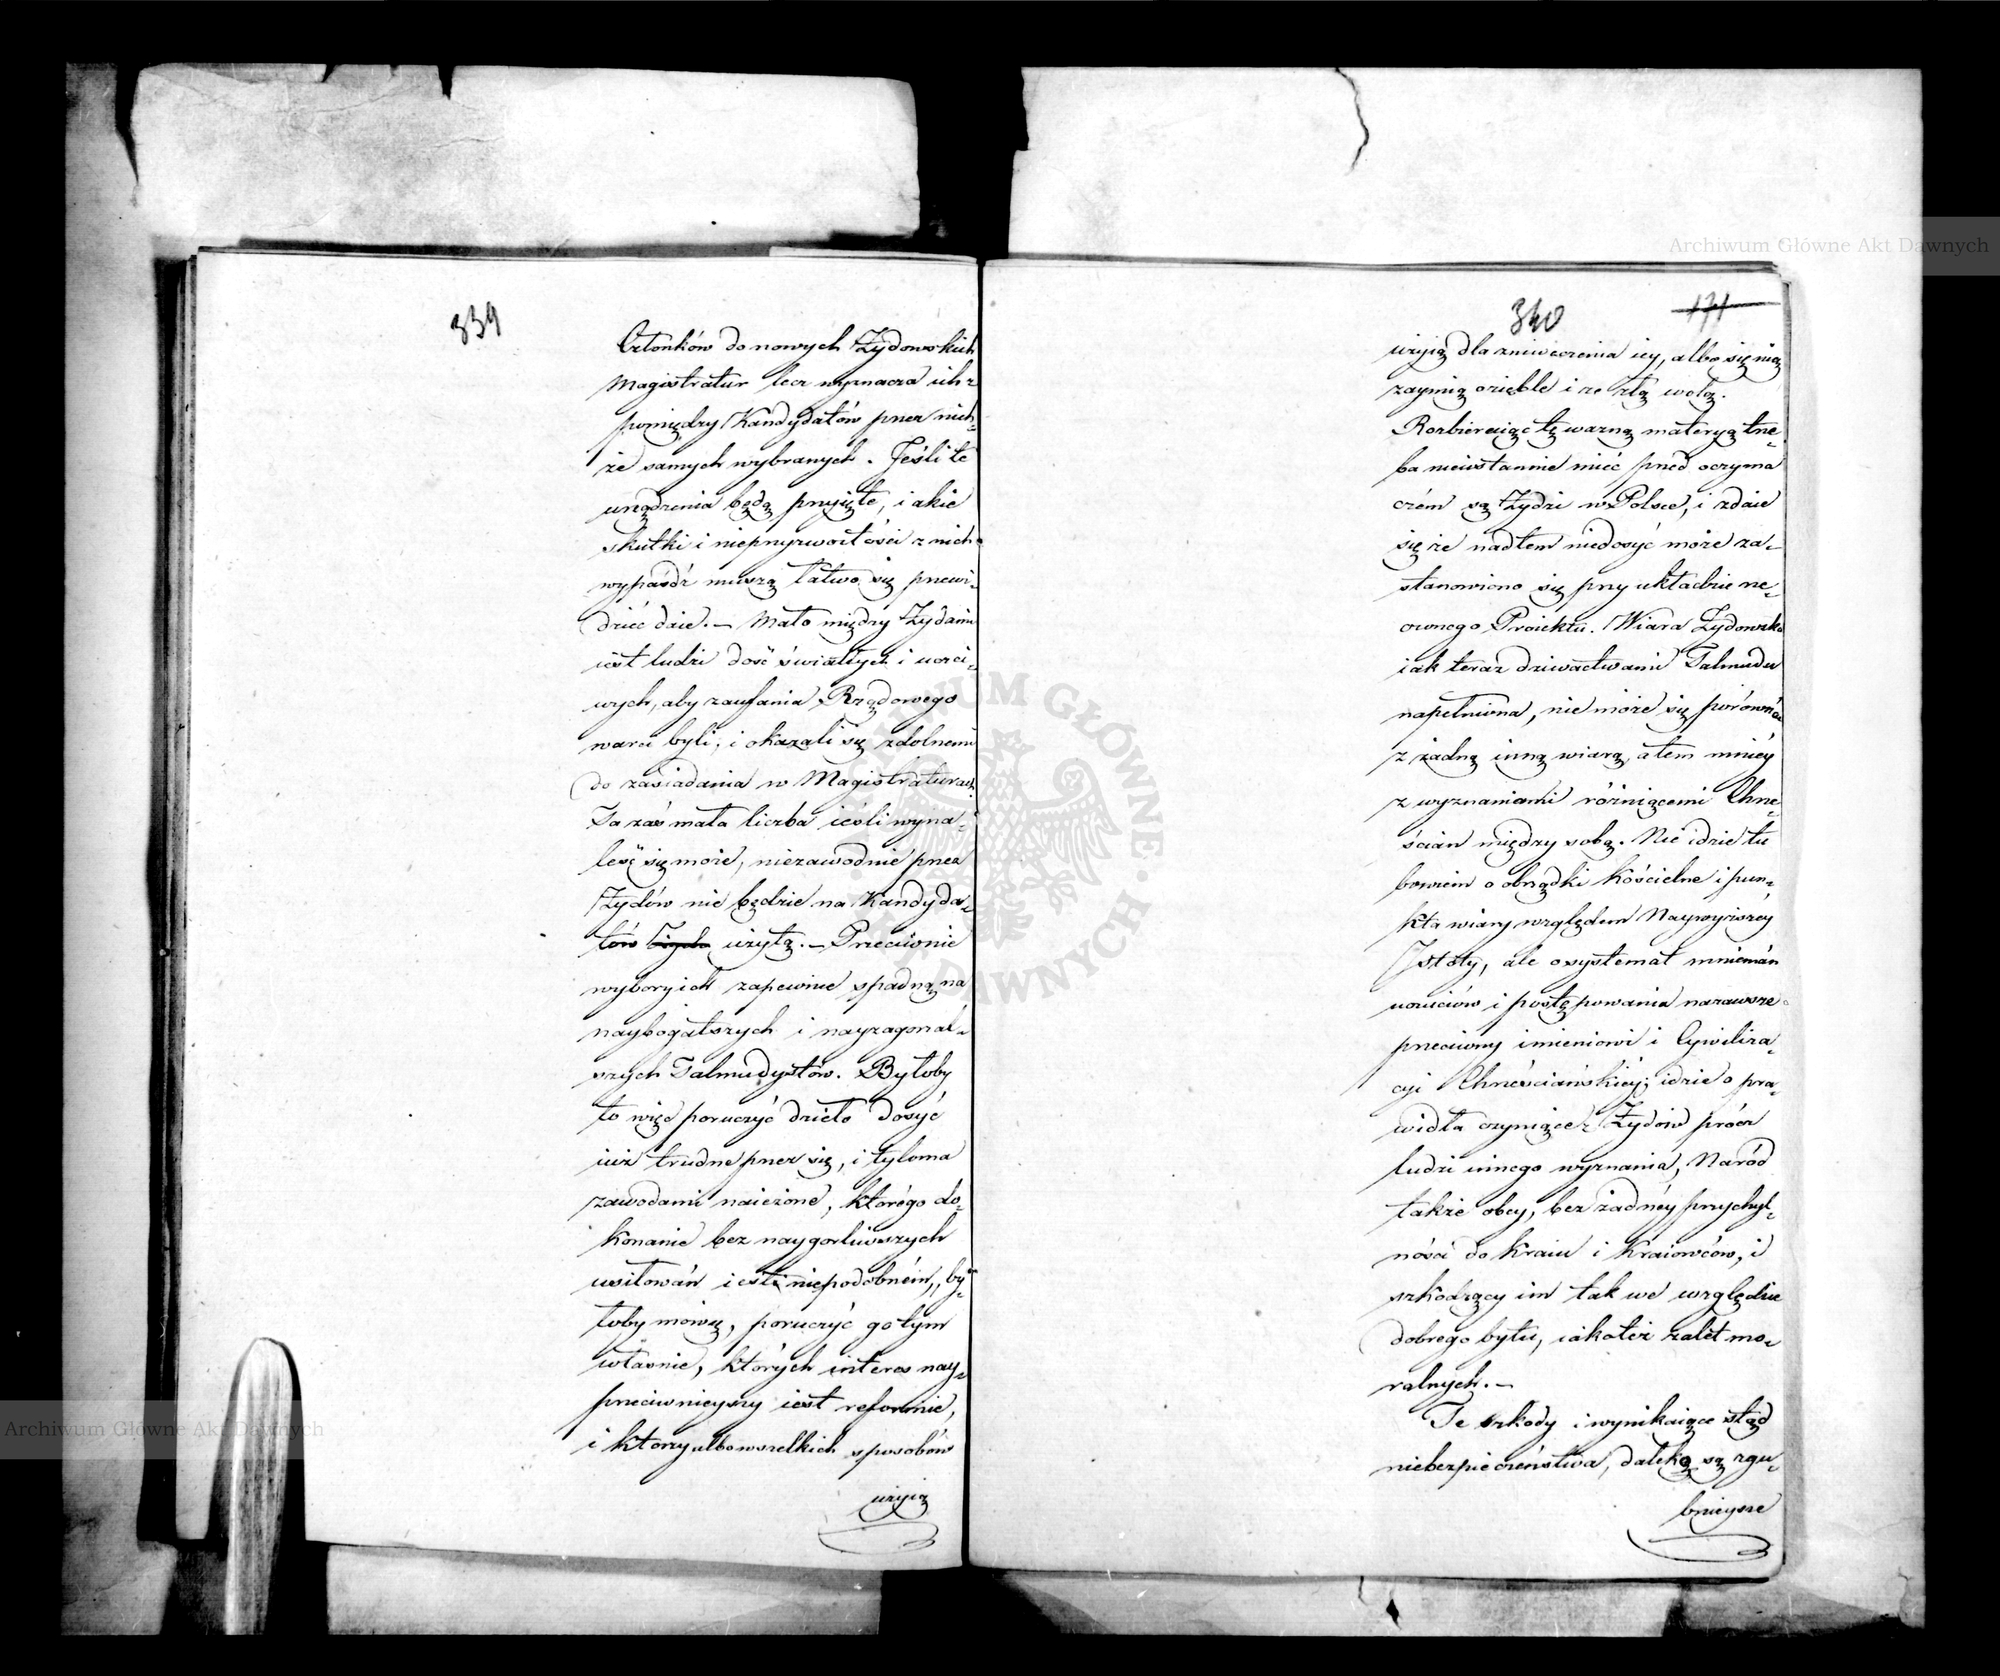 339
Członków do nowych Żydowskich
Magistratur lecz wyznacza ich z
pomiędzy Kandydatów przez nich-
że samych wybranych. Jeśli te
urządzenia będą przyięte, iakie
skutki i nieprzyzwoitości z nich
wypaśdź muszą łatwo się przewi-
dzieć daie. — Mało między Żydami
iest ludzi dość światłych i uczci-
wych, aby zaufania Rządowego
warci byli, i okazali się zdolnemi
do zasiadania w Magistraturach.
Ta zaś mała liczba ieśli wyna-
leść się może, niezawodnie przez
Żydów nie będzie na Kandyda-
tów użytą. — Przeciwnie
wybory ich zapewnie spadną na
naybogatszych i nayzagorzal-
szych Talmudystów. Byłoby
to więc poruczyć dzieło dosyć
iuż trudne przez się, i tyloma
zawodami naieżone, którégo do-
konanie bez naygorliwszych
usiłowań iest niepodobném, by-
łoby mówię, poruczyć go tym
właśnie, których interes nay-
przeciwnieyszy iest reformie,
i którzy albo wszelkich sposobów
użyią
340
171
użyią dla zniweczenia iey, albo się nią
zaymią ozięble i ze złą wolą.
Rozbieraiąc tę ważną materyą trze-
ba nieustannie mieć przed oczyma
czém są Żydzi w Polsce, i zdaie
się że nad tem niedosyć może za-
stanowiono się przy układzie rze-
czonego Proiektu. Wiara Żydowska
iak teraz dziwactwami Talmudu
napełniona, nie może się porównać
z żadną inną wiarą, a tem mniéy
z wyznaniami różniącemi Chrze-
ścian między sobą. Nie idzie tu
bowiem o obrządki kościelne i pun-
kta wiary względem Naywyższéy
Istoty, ale o systemat mniemań
uczuciów i postępowania nazawsze
przeciwny imieniowi i Cywiliza-
cyi Chrześciańskiéy; idzie o pra-
widła czyniące z Żydów prócz
ludzi innego wyznania, Naród
także obcy, bez żadnéy przychyl-
ności do Kraiu i Kraiowców, i
szkodzący im tak we względzie
dobrego bytu, iakoteż zalet mo-
ralnych. —
Te szkody i wynikaiące stąd
niebezpieczeństwa, daleko są zgu-
bnieysze
Archiwum Główne Akt Dawnych
Archiwum Główne Akt Dawnych
ARCHIWUM GŁÓWNE AKT DAWNYCH